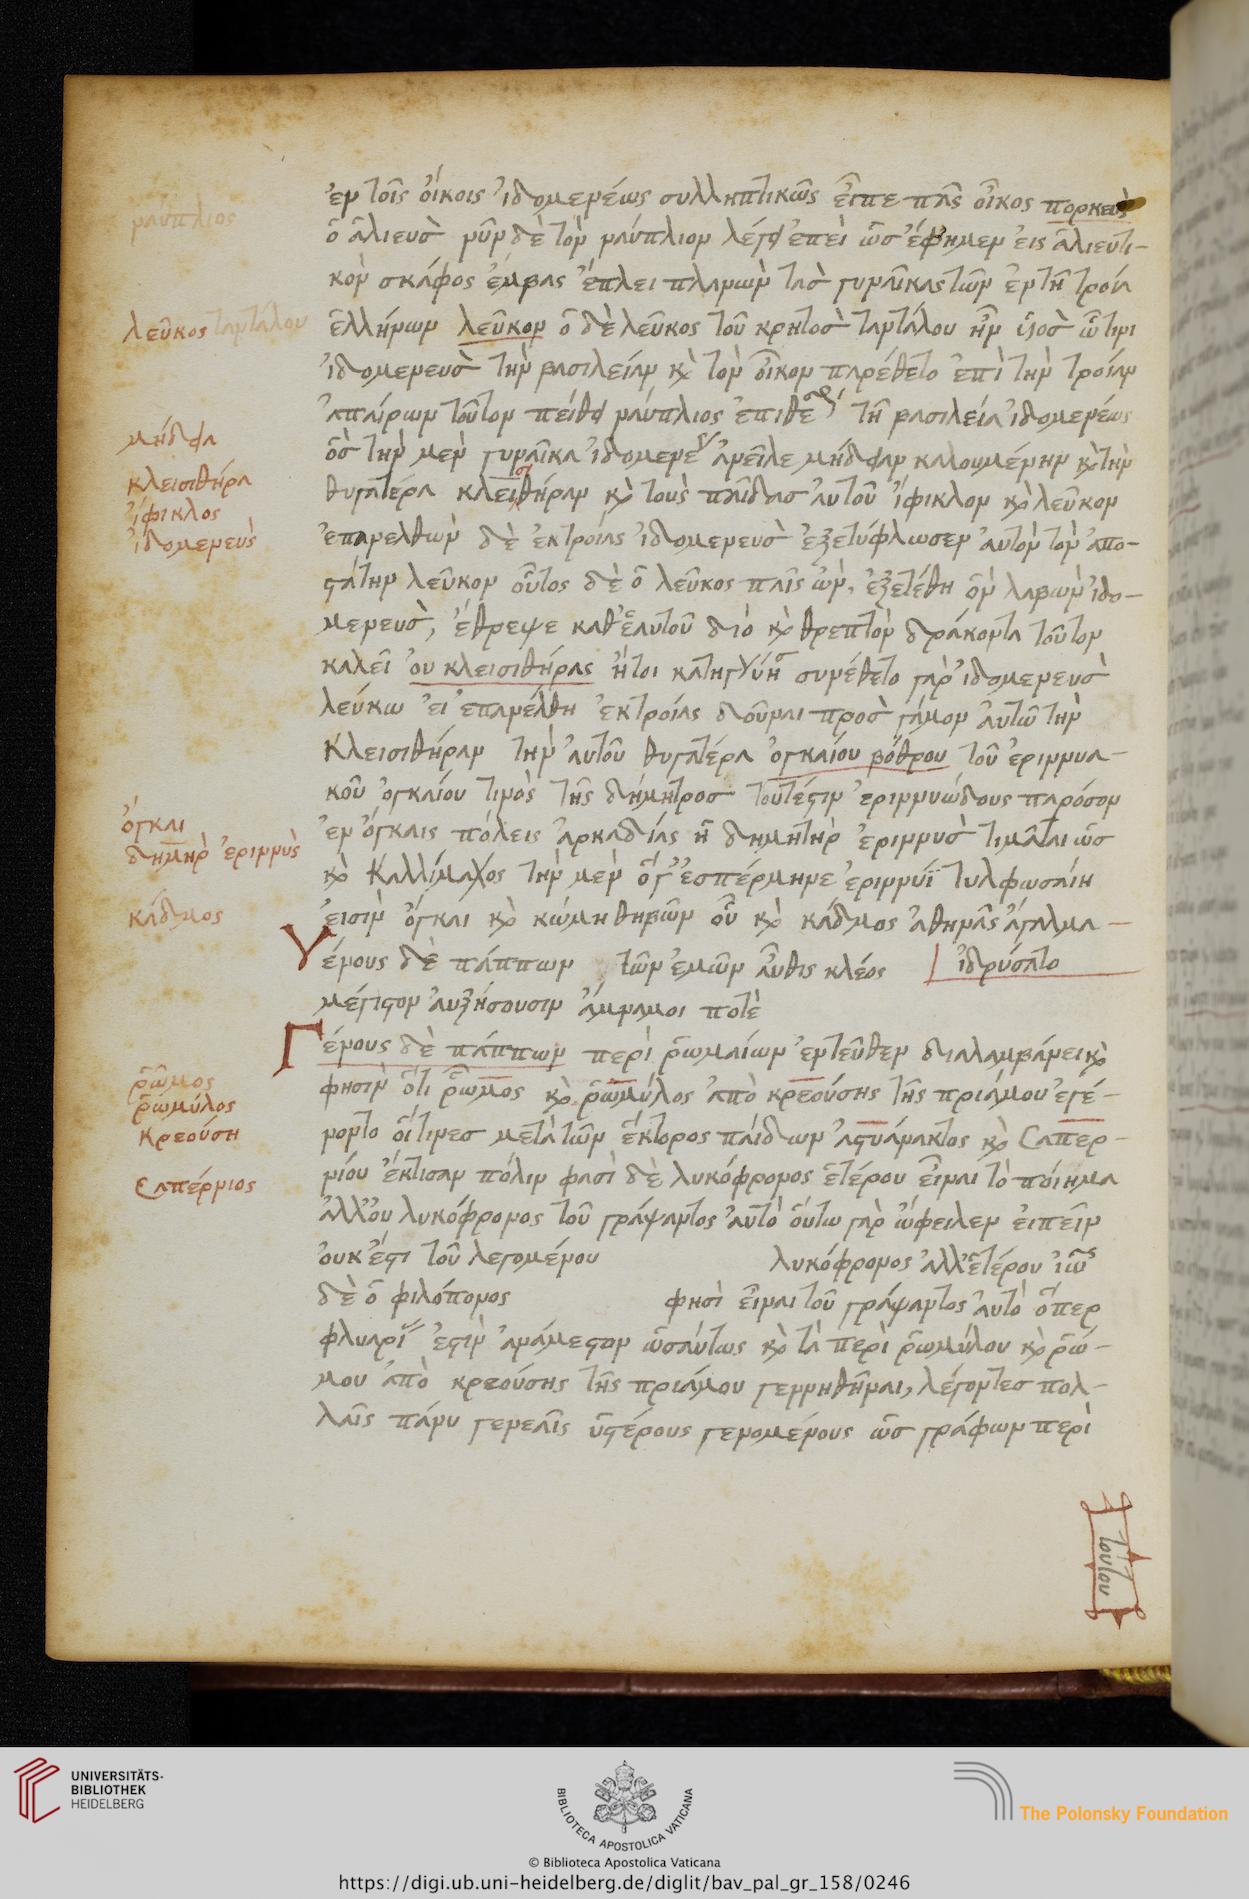 ναύπλιος
λεῦκος ταντάλου
μήδεια
κλεισιθήρα
ἴφικλος
ἰδομενεὺς
ὄγκαι
δημήτηρ ἐριννὺς
κάδμος
ῥῶμος
ῥωμύλος
κρεούση
Σαπέρνιος
ἐν τοῖς οἴκοις ἰδομενέως συλληπτικῶς εἶπε πᾶς οἶκος πορκεὺς
ὁ ἁλιεὺσ νῦν δὲ τὸν ναύπλιον λέγει ἐπεὶ ὡσ ἔφημεν εἰς ἁλιευτι-
κὸν σκάφος ἐμβας ἔπλει πλανωὼν τασ γυναῖκας τῶν ἐν τῇ τροία
ἑλλήνων λεῦκον ὁ δὲ λεῦκος τοῦ κρητοσ ταντάλου ἦν ὑιοσ ὧτινι
ἰδομενευσ τὴν βασιλείαν κὶ τὸν οἶκον παρέθετο ἐπὶ τὴν τροίαν
ἀπαίρων τοῦτον πείθει ναύπλιος ἐπιθέσθαι τῇ βασιλεία ἰδομενέως
ὃσ τὴν μεν γυναῖκα ἰδομενέως ἀνεῖλε μήδειαν καλουμένην κὶ τὴν
θυγατέρα κλεισιθήραν κὶ τοὺς παῖδασ αὐτοῦ ἴφικλον κὶ λεῦκον
ἐπανελθὼν δὲ ἐκ τροίας ἰδομενευσ ἐξετύφλωσεν αὐτὸν τὸν ἀπο-
στάτην λεῦκον οὗτος δὲ ὁ λεῦκος παῖς ὢν, ἐξετέθη ὃν λαβὼν ἰδο-
μενευσ, ἔθρεψε καθ' ἑαυτοῦ διὸ κὶ θρεπτὸν δράκοντα τοῦτον
καλεῖ ου κλεισιθήρας ἤτοι κατηγγύησ συνέθετο γαρ ἰδομενευσ
λεύκω εἰ ἐπανέλθη ἐκ τροίας δοῦναι προσ γάμον αὐτῶ τὴν
Κλεισιθήραν τὴν αὐτοῦ θυγατέρα ὀγκαίου βόθρου τοῦ ἐριννυα-
κοῦ ὀγκαίου τινὸς τῆς δήμητροσ τουτέστιν ἐριννυώδους παρόσον
ἐν ὄγκαις πόλεις ἀρκαδίας ἡ δημήτηρ ἐριννυσ τιμᾶται ὡσ
κὶ Καλλίμαχος τὴν μεν ὅγ' ἐσπέρμηνε ἐριννύϊ τυλφωσαίη
εἰσιν ὄγκαι κὶ κώμη θηβῶν οὗ κὶ κάδμος ἀθηνᾶς ἄγαλμα
γένους δὲ πάππων τῶν ἐμῶν αὖθις κλέος ἱδρύσατο
μέγιστον αὐξήσουσιν ἄμναμοι ποτὲ
Γένους δὲ πάππων περὶ ῥωμαίων ἐντεῦθεν διαλαμβάνει κὶ
φησὶν ὅτι ῥῶμος κὶ ῥωμύλος ἀπὸ κρεούσης τῆς πριάμου ἐγέ-
νοντο οἵτινεσ μετὰ τῶν ἕκτορος παίδων ἀστυάνακτος κὶ Σαπερ-
νίου ἔκτισαν πόλιν φασὶ δὲ λυκόφρονος ἑτέρου εἶναι τὸ ποίημα
ἀλλ' ου λυκόφρονος τοῦ γράψαντος αὐτὸ οὕτω γαρ ὤφειλεν εἰπεῖν
οὐκ ἔστι τοῦ λεγομένου λυκόφρονος ἀλλ' ἑτέρου ἰὼς
δὲ ὁ φιλόπονος φησὶ εἶναι τοῦ γράψαντος αὐτὸ ὅπερ
φλυαρίας ἐστιν ἀνάμεστον ὡσαύτως κὶ τὰ περὶ ῥωμύλου κὶ ῥώ-
μου ἀπὸ κρεούσης τῆς πριάμου γεννηθῆναι, λέγοντεσ πολ-
λαῖς πάνυ γενεαῖς ὑστέρους γενομένους ὡσ γράφων περὶ
τούτου
UNIVERSITÄTS-
BIBLIOTHEK
HEIDELBERG
BIBLIOTECA APOSTOLICA VATICANA
The Polonsky Foundation
© Biblioteca Apostolica Vaticana
https://digi.ub.uni-heidelberg.de/diglit/bav_pal_gr_158/0246